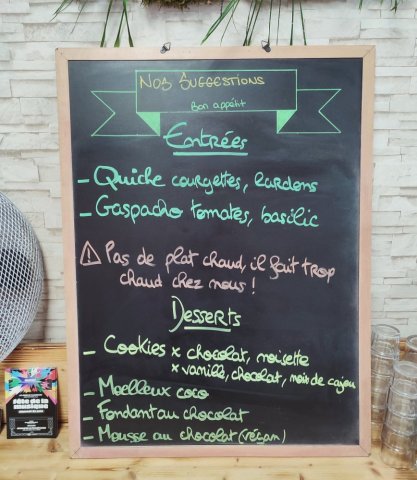 Nos Suggestions
Bon appétit
Entrées
- Quiche courgettes, lardons
- Gaspacho tomates, basilic
! Pas de plat chaud, il fait trop
chaud chez nous !
Desserts
- Cookies x chocolat, noisette
x vanille, chocolat, noix de cajou
- Moelleux coco
- Fondant au chocolat
- Mousse au chocolat (végan)
Fête de la
musique